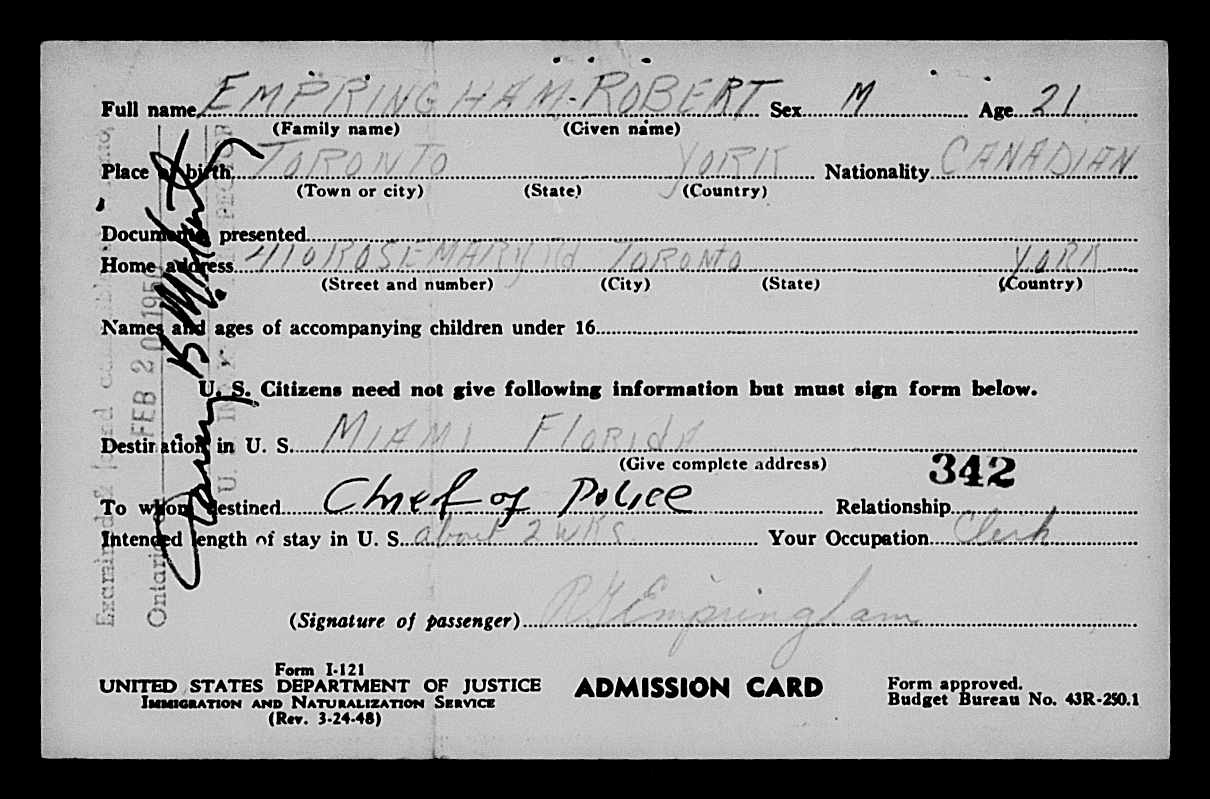 Full name EMPRINGHAM - ROBERT Sex M Age 21
(Family name) (Given name)
Place of birth TORONTO YORK Nationality CANADIAN
(Town or city) (State) (Country)
Documents presented
Home address 410 ROSEMARY Rd TORONTO YORK
(Street and number) (City) (State) (Country)
Names and ages of accompanying children under 16
U. S. Citizens need not give following information but must sign form below.
Destination in U. S. MIAMI FLORIDA
(Give complete address)
342
To whom destined Chief of Police Relationship
Intended length of stay in U. S. about 2 wks Your Occupation Clerk
(Signature of passenger) Empringham
Form I-121
UNITED STATES DEPARTMENT OF JUSTICE
IMMIGRATION AND NATURALIZATION SERVICE
(Rev. 3-24-48)
ADMISSION CARD
Form approved.
Budget Bureau No. 43R-250.1
Examined
Ontario
FEB 20 195
U.